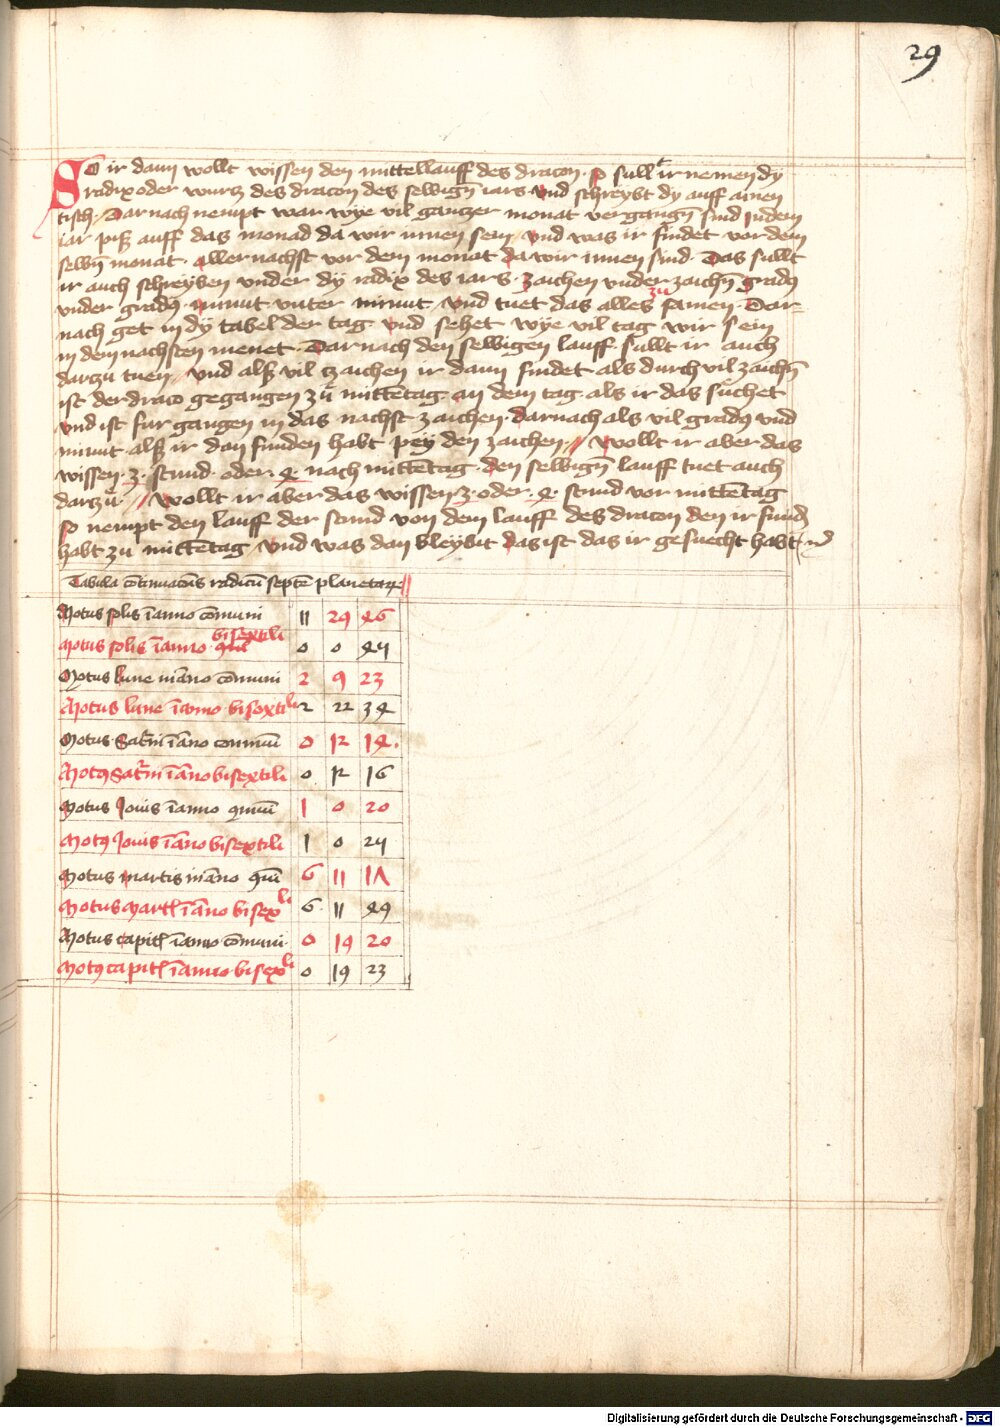 29
So ir dann wollt wissen den mittellauff des dracon · so sullt ir nemen dy
radix oder wurz des dracon des selbign̄ iars · und schreybt dy auff ainen
tisch · Darnach nempt war wye vil gantzer monat vergangn̄ sind indem
iar piß auff das monad da wir innen sein // und was ir findet vor dem
selbn̄ monat · aller nachst vor dem monat da wir innen sind · Das sullt
ir auch schreyben under dy radix des iars · zaichen under zaichn̄ gradꝯ
under gradꝯ · minut unter minut · und tuet das alles zu samen · Dar-
nach get in dy tabel der tag · und sehet wye vil tag wir sein
in dem nachsten menet · Darnach den selbigen lauff sullt ir auch
darzu tuen // und alß vil zaichen ir dann findet als durch vil zaichn̄
ist der draco gegangen zu mittētag an dem tag als ir das suchet
und ist fur gangen in das nachst zaichen · darnach als vil gradꝯ und
minut alß ir dan funden habt pey den zaichen // wollt ir aber das
wissen · 3 · stund · oder · 4 · nach mittētag · den selbign̄ lauff tuet auch
darzu // wollt ir aber das wissen 3 · oder · 4 · stund vor mittētag
so nempt den lauff der stund von dem lauff des dracon den ir fundn̄
habt zu mittētag und was dan bleybit das ist das ir gesuecht habt
Tabula cōtinuacōis radicū septē planetarꝝ
Motus solis ī anno cōmuni 11 29 46
Motus solis ī anno bisextili 0 0 45
Motus lune in āno cōmuni 2 9 23
Motus lune ī anno bisextili 2 22 34
Motus Saťni ī āno commūi 0 12 14
Motꝯ Saťni ī āno bisextili 0 12 16
Motus Jovis ī anno 9muī 1 0 20
Motꝯ Jovis ī āno bisextili 1 0 25
Motus martis in āno 9uī 6 11 17
Motus Martꝭ ī āno bisexli 6 11 49
Motus capitꝭ ī anno cōmuni 0 19 20
Motꝯ capitꝭ ī anno bisexli 0 19 23
Digitalisierung gefördert durch die Deutsche Forschungsgemeinschaft - DFG